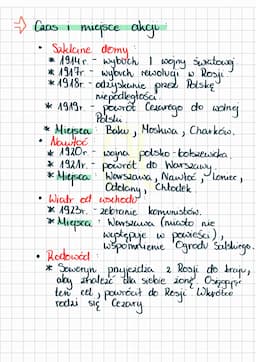 ⇒ Czas i miejsce akcji
• Szklane domy:
* 1914r. - wybuch I wojny światowej
* 1917r. - wybuch rewolucji w Rosji
* 1918r. - odzyskanie przez Polskę
niepodległości
* 1919r. - powrót Cezarego do wolnej
Polski
* Miejsca: Baku, Moskwa, Charków.
• Nawłoć
* 1920r. - wojna polsko-bolszewicka
* 1921r. - powrót do Warszawy
* Miejsca: Warszawa, Nawłoć, Leniec,
Odolany, Chłodek
• Wiatr od wschodu
* 1923r. - zebranie komunistów.
* Miejsca: Warszawa (miasto nie
występuje w powieści),
wspomnienie Ogrodu Saskiego.
• Rodowód:
* Seweryn przyjeżdża z Rosji do kraju,
aby znaleźć dla siebie żonę. Osiągając
ten cel, powrócił do Rosji. Wkrótce
rodzi się Cezary